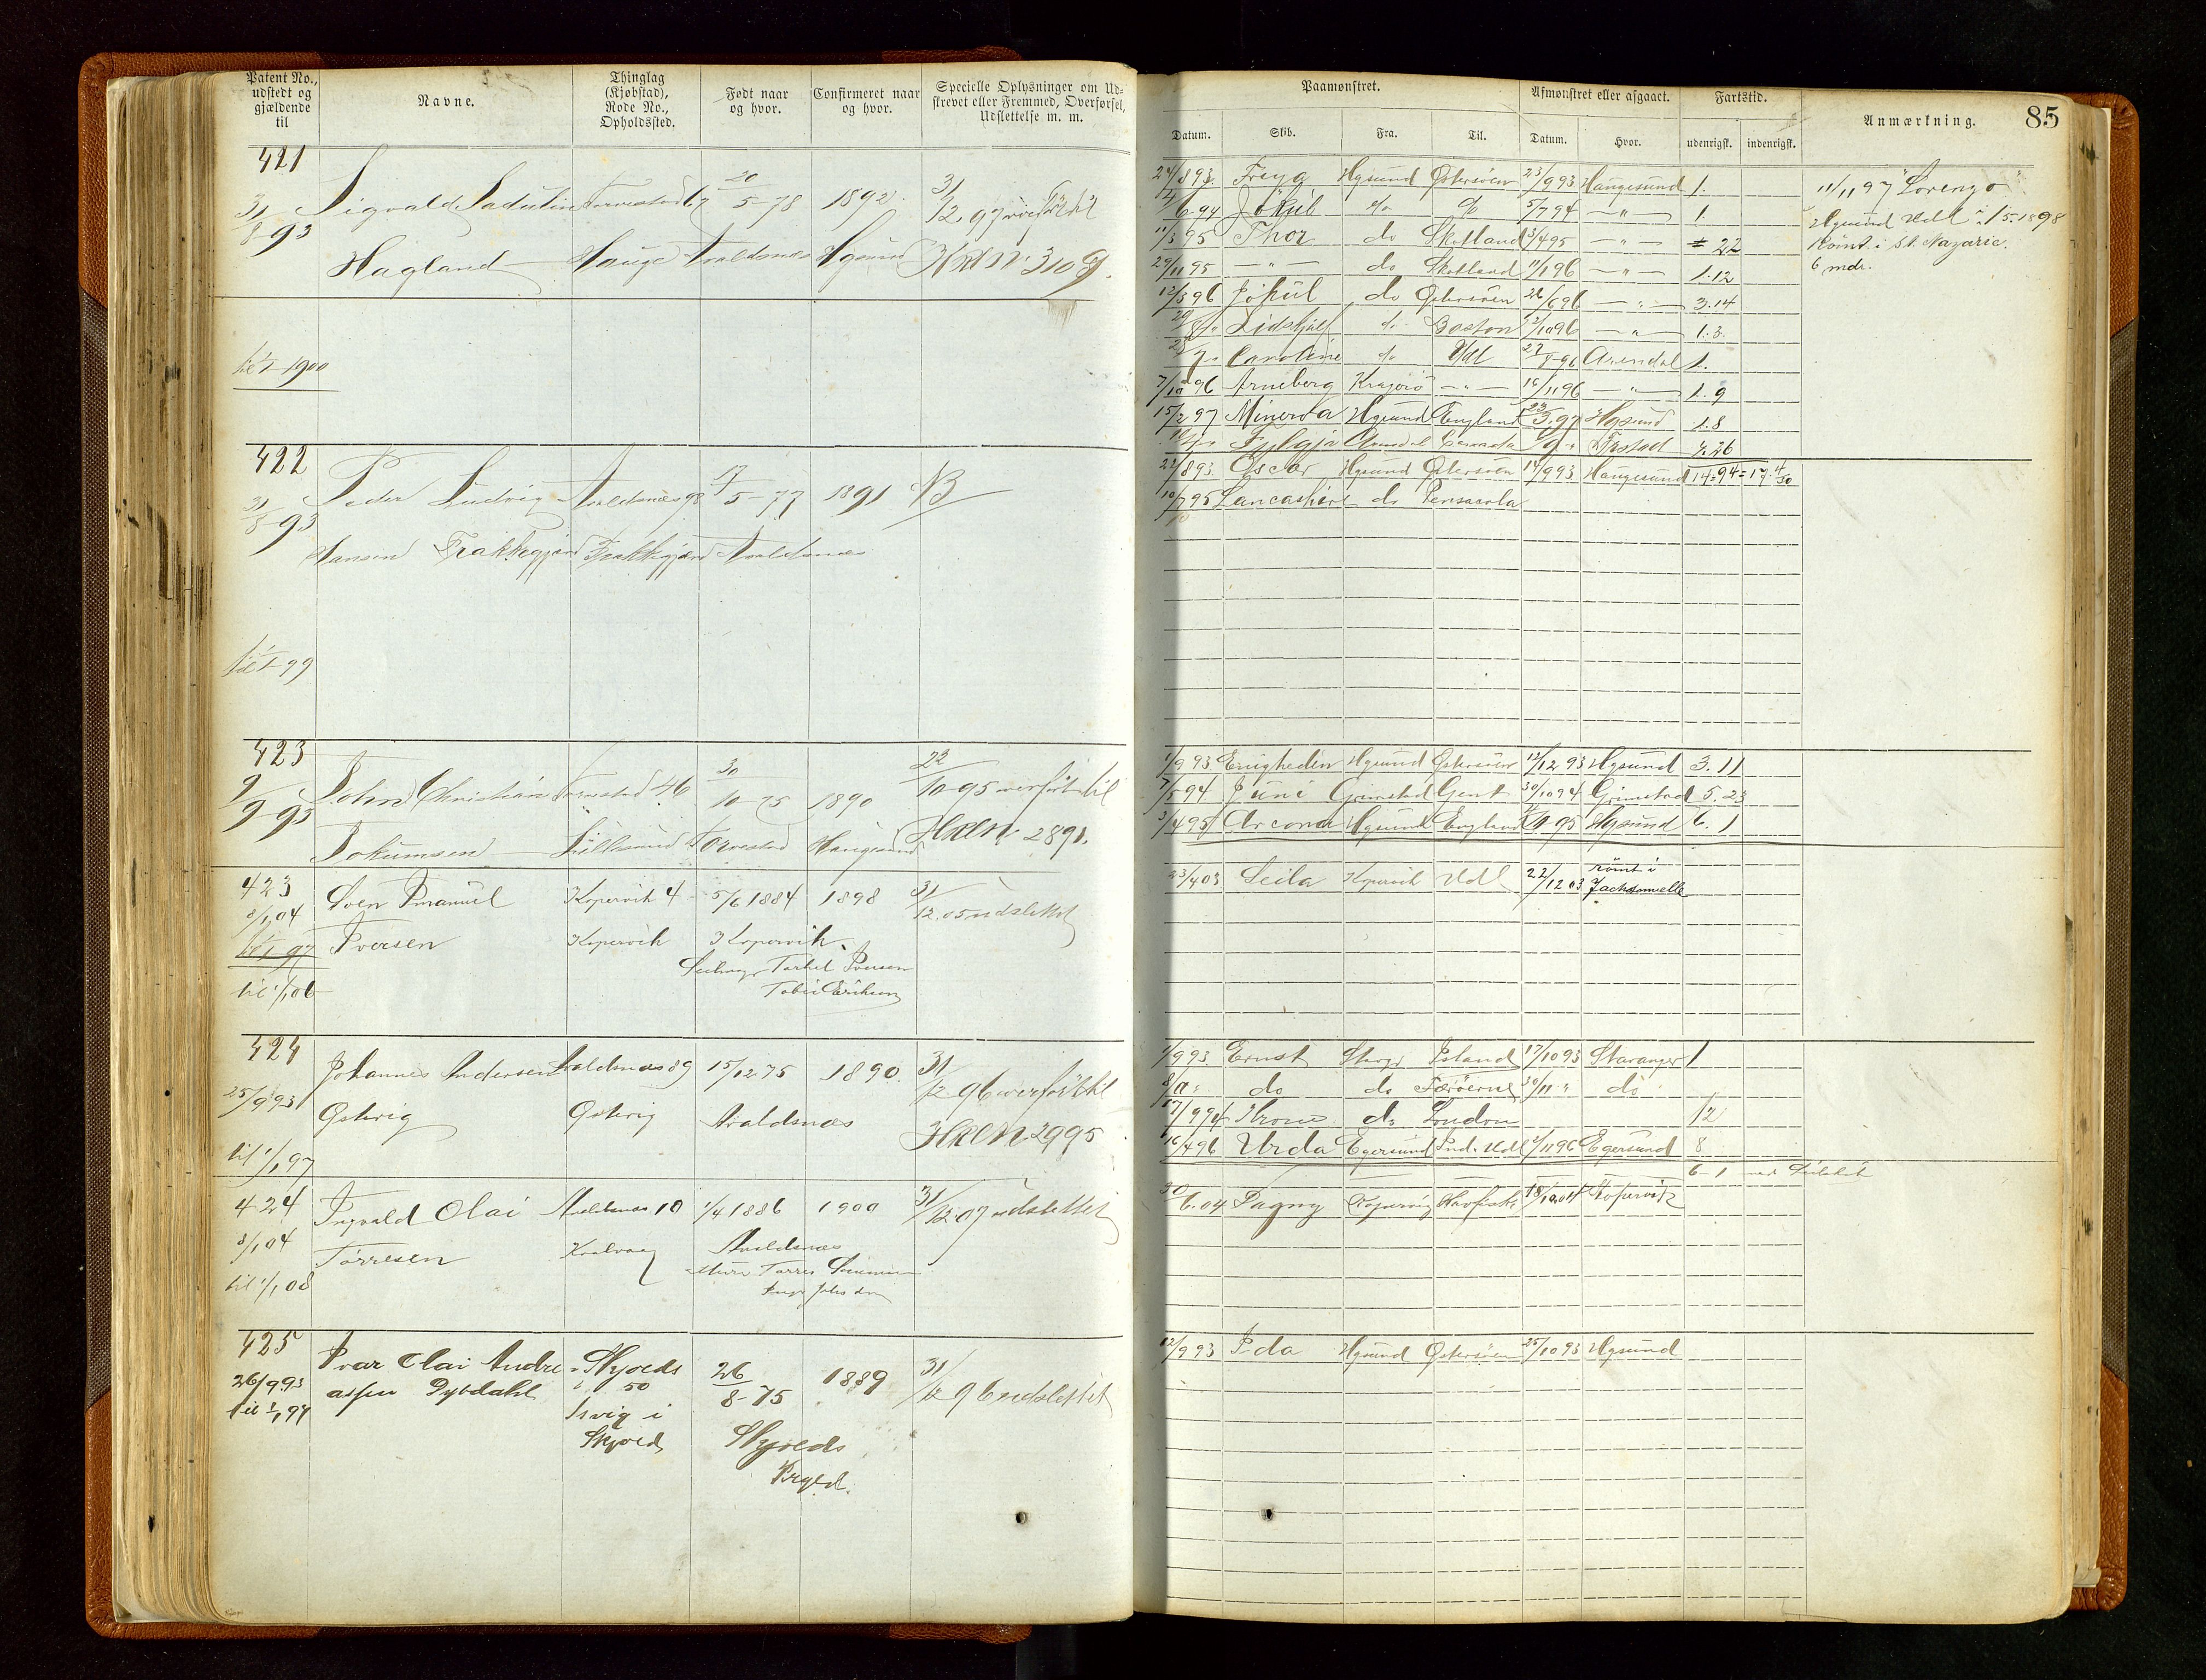 Patent No.,
udstedt og
gjældende
til
Navne.
Thinglag
(Kjøbstad),
Rode No.,
Opholdssted.
Født naar
og hvor.
Confirmeret naar
og hvor.
Specielle Oplysninger om Ud-
skrevet eller Fremmed, Overførsel,
Udslettelse m. m.
421
31/8-93
Sigvald Torvestad 67 20/5-78 1892 31/12 97 overført til
Hagland Hauge Avaldsnæs Hgsund 3109.
til 1/1 1900
422
31/8-93
Peder Ludvig Avaldsnæs 98 17/5-77 1891
Hansen Trakkegjerd Trakkegjerd Avaldsnæs
til 1/1 99
423
9/9-93
John Christian Torvestad 46 30/10-75 1890 22/10-95 overført til
Jokumsen Torvestad Haugesund 2891.
423
8/1 04
til 1/1 97
til 1/1 06
Sven Emanuel Kopervik 4 5/6 1884 1898 31/12.05 udslettet
Iversen Kopervik Kopervik
Torkel Iversen
424
25/9 93
til 1/1 97
Johannes Andersen Avaldsnæs 89 15/12 75 1890. 31/12 96 overført til
Østevig Østevig Avaldsnæs 2995
424
8/1 04
til 1/1 08
Ingvald Olai Avaldsnæs 10 1/4 1886 1900 31/12 07 udslettet
Torresen Avaldsnæs
425
26/9 93
til 1/1 97
Ivar Olai Andre Skjold 50 26/8-75 1889 31/12 96 udslettet
assen Dybdahl
i
Skjold Skjolds
Prgld.
85
Paamønstret.
Afmønstret eller afgaaet.
Fartstid.
Anmærkning.
Datum. Skib. Fra. Til. Datum. Hvor. udenrigsk. indenrigsk.
24/8 93. Freya Hgsund Østersøen 23/9 93 Haugesund 1.
6.94 Jøkul do do 5/7 94 — " — 1.
11/3 95 Thor do Skotland 3/4 95 — " — 22
29/11 95 — " — do Skotland 11/1 96 — " — 1.12
12/3 96 Jøkul do Østersøen 26/6 96 — " — 3.14
Lidskjalf do Boston 2/10 96 — " — 1.3.
Caroline do Udl 27/8-96 Arendal 1.
7/10 96 Arneberg Kragerø — " — 16/11 96 — " — 1.9
15/2 97 Minerva Hgsund England 23/3.97 Hgsund 1.8
Fylgja Arendal Canada 4.26
11/11 97 "Lorenzo"
Hgsund Udl 1/5.1898
Rømt i St. Nazaire.
6 mdr.
22/8 93. Oscar Hgsund Østersøen 14/9 93 Haugesund
10/7 95 Lancashire do Pensacola
1/9 93 Enigheden Hgsund Østersøen 12/12 93 Hgsund 3.11
7/5 94 Juni Grimstad Gent 30/10 94 Grimstad 5.23
3/4 95 Arcona Hgsund England Hgsund 6.1
23/4 03 Leila Kopervik Udl 22/12 03 rømt i
Jacksonville
1/9 93. Ernst Stvgr Island 17/10 93 Stavanger 1
8/11 " do do Færøerne 30/11 " do
17/9 94 Krone do London 12
16/4 96 Urda Egersund Ind. Udl 4/11 96 Egersund 8
6-1
30/6.04 Dagny Kopervig Havfiske 18/10.04 Kopervik
12/9 93 Ida Hgsund Østersøen 25/10 93 Hgsund